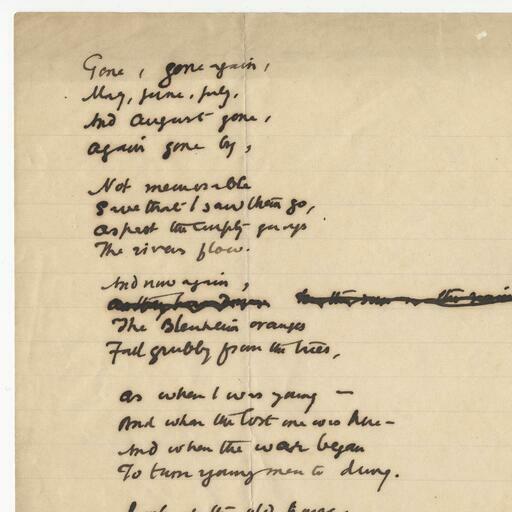 Gone, gone again,
May, June, July,
And August gone,
Again gone by,
Not memorable
Save that I saw them go,
As past the empty quays
The rivers flow.
And now again,
The Blenheim oranges
Fall grubby from the trees,
As when I was young —
And when the lost one was here —
And when the war began
To turn young men to dung.
Look at the old house,